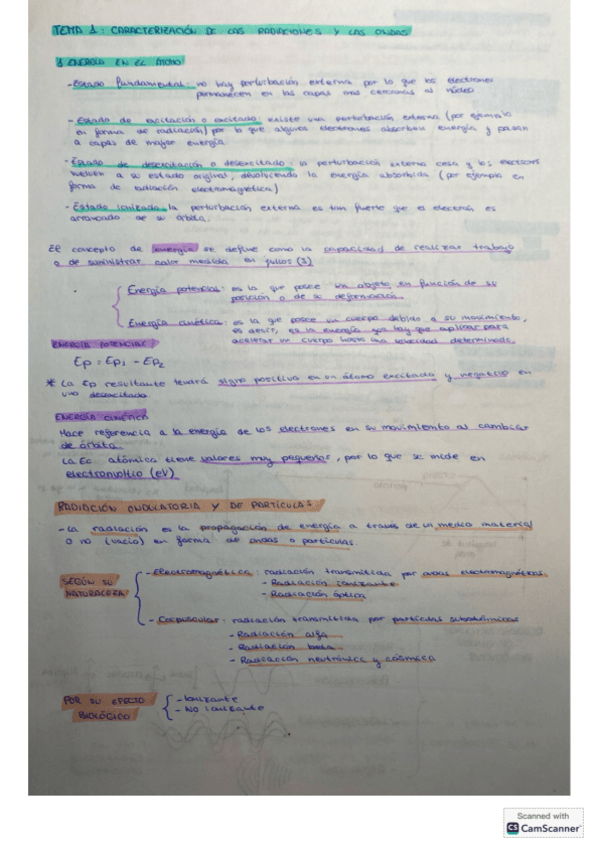 TEMA 1: CARACTERIZACIÓN DE LAS RADIACIONES Y LAS ONDAS
1 ENERGÍA EN EL ÁTOMO
- Estado fundamental: no hay perturbación externa por lo que los electrones
permanecen en las capas mas cercanas al núcleo
- Estado de excitación o excitado: existe una perturbación externa (por ejemplo
en forma de radiación) por lo que algunos electrones absorben energía y pasan
a capas de mayor energía.
- Estado de desexcitación o desexcitado: la perturbación externa cesa y los electrones
vuelven a su estado original, devolviendo la energía absorbida (por ejemplo en
forma de radiación electromagnética)
- Estado ionizado: la perturbación externa es tan fuerte que el electrón es
arrancado de su órbita.
El concepto de energía se define como la capacidad de realizar trabajo
o de suministrar calor medida en julios (J)
Energía potencial: es la que posee un objeto en función de su
posición o de su deformación.
Energía cinética: es la que posee un cuerpo debido a su movimiento,
es decir, es la energía que hay que aplicar para
acelerar un cuerpo hasta una velocidad determinada.
ENERGÍA POTENCIAL
Ep = Ep1 - Ep2
* La Ep resultante tendrá signo positivo en un átomo excitado y negativo en
uno desexcitado.
ENERGÍA CINÉTICA
Hace referencia a la energía de los electrones en su movimiento al cambiar
de órbita.
La Ec atómica tiene valores muy pequeños, por lo que se mide en
electronvoltio (eV)
RADIACIÓN ONDULATORIA Y DE PARTÍCULAS
- La radiación es la propagación de energía a través de un medio material
o no (vacío) en forma de ondas o partículas.
SEGÚN SU NATURALEZA
- Electromagnética: radiación transmitida por ondas electromagnéticas.
- Radiación ionizante
- Radiación óptica
- Corpuscular: radiación transmitida por partículas subatómicas
- Radiación alfa
- Radiación beta
- Radiación neutrónica y cósmica
POR SU EFECTO BIOLÓGICO
- Ionizante
- NO ionizante
Scanned with
CS CamScanner